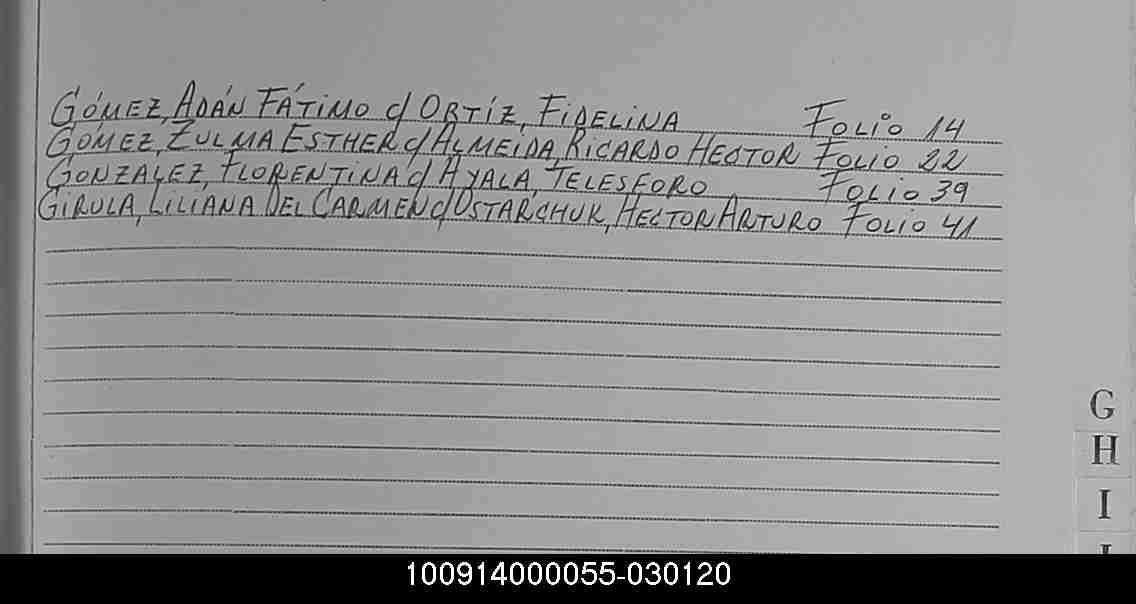 GÓMEZ, ADÁN FÁTIMO c/ ORTÍZ, FIDELINA FOLIO 14
GÓMEZ, ZULMA ESTHER c/ ALMEIDA, RICARDO HECTOR FOLIO 22
GONZALEZ, FLORENTINA c/ AYALA, TELESFORO FOLIO 39
GIRULA, LILIANA DEL CARMEN c/ OSTARCHUK, HECTOR ARTURO FOLIO 41
G
H
I
100914000055-030120